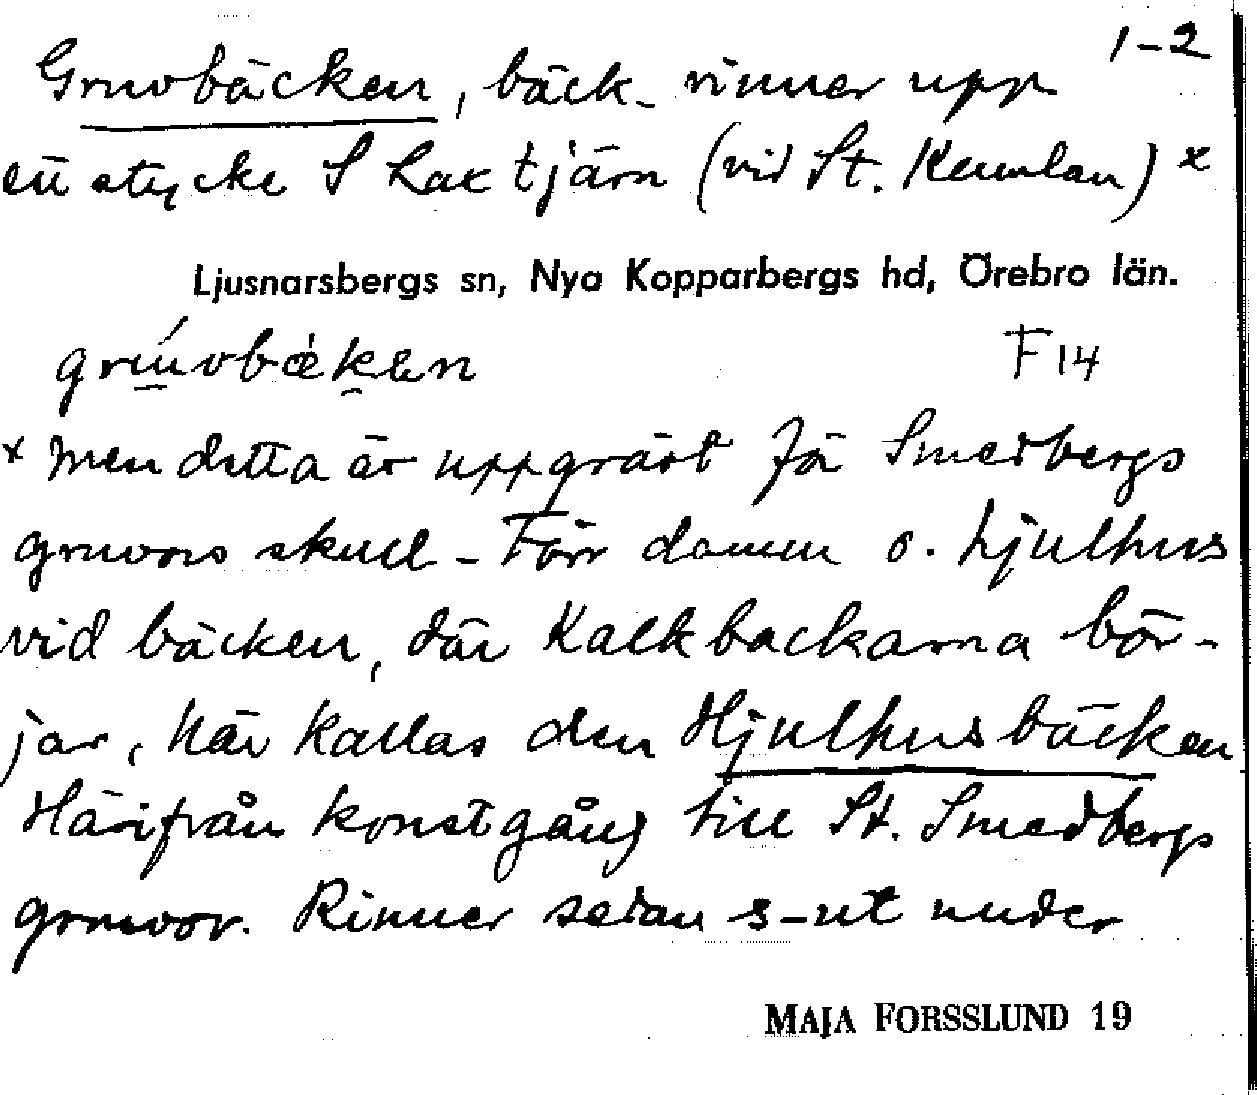 1-2
Gruvbäcken, bäck - rinner upp
ett stycke S Lax tjärn (vid St. Kumlan) x
Ljusnarsbergs sn, Nya Kopparbergs hd, Örebro län.
F 14
x men detta är uppgrävt för Smedbergs
gruvors skull - Förr damm o. hjulhus
vid bäcken, där Kalkbackarna bör-
jar, här kallas den Hjulhusbäcken
Härifrån konstgång till St. Smedbergs
gruvor. Rinner sedan s-ut under
MAJA FORSSLUND 19